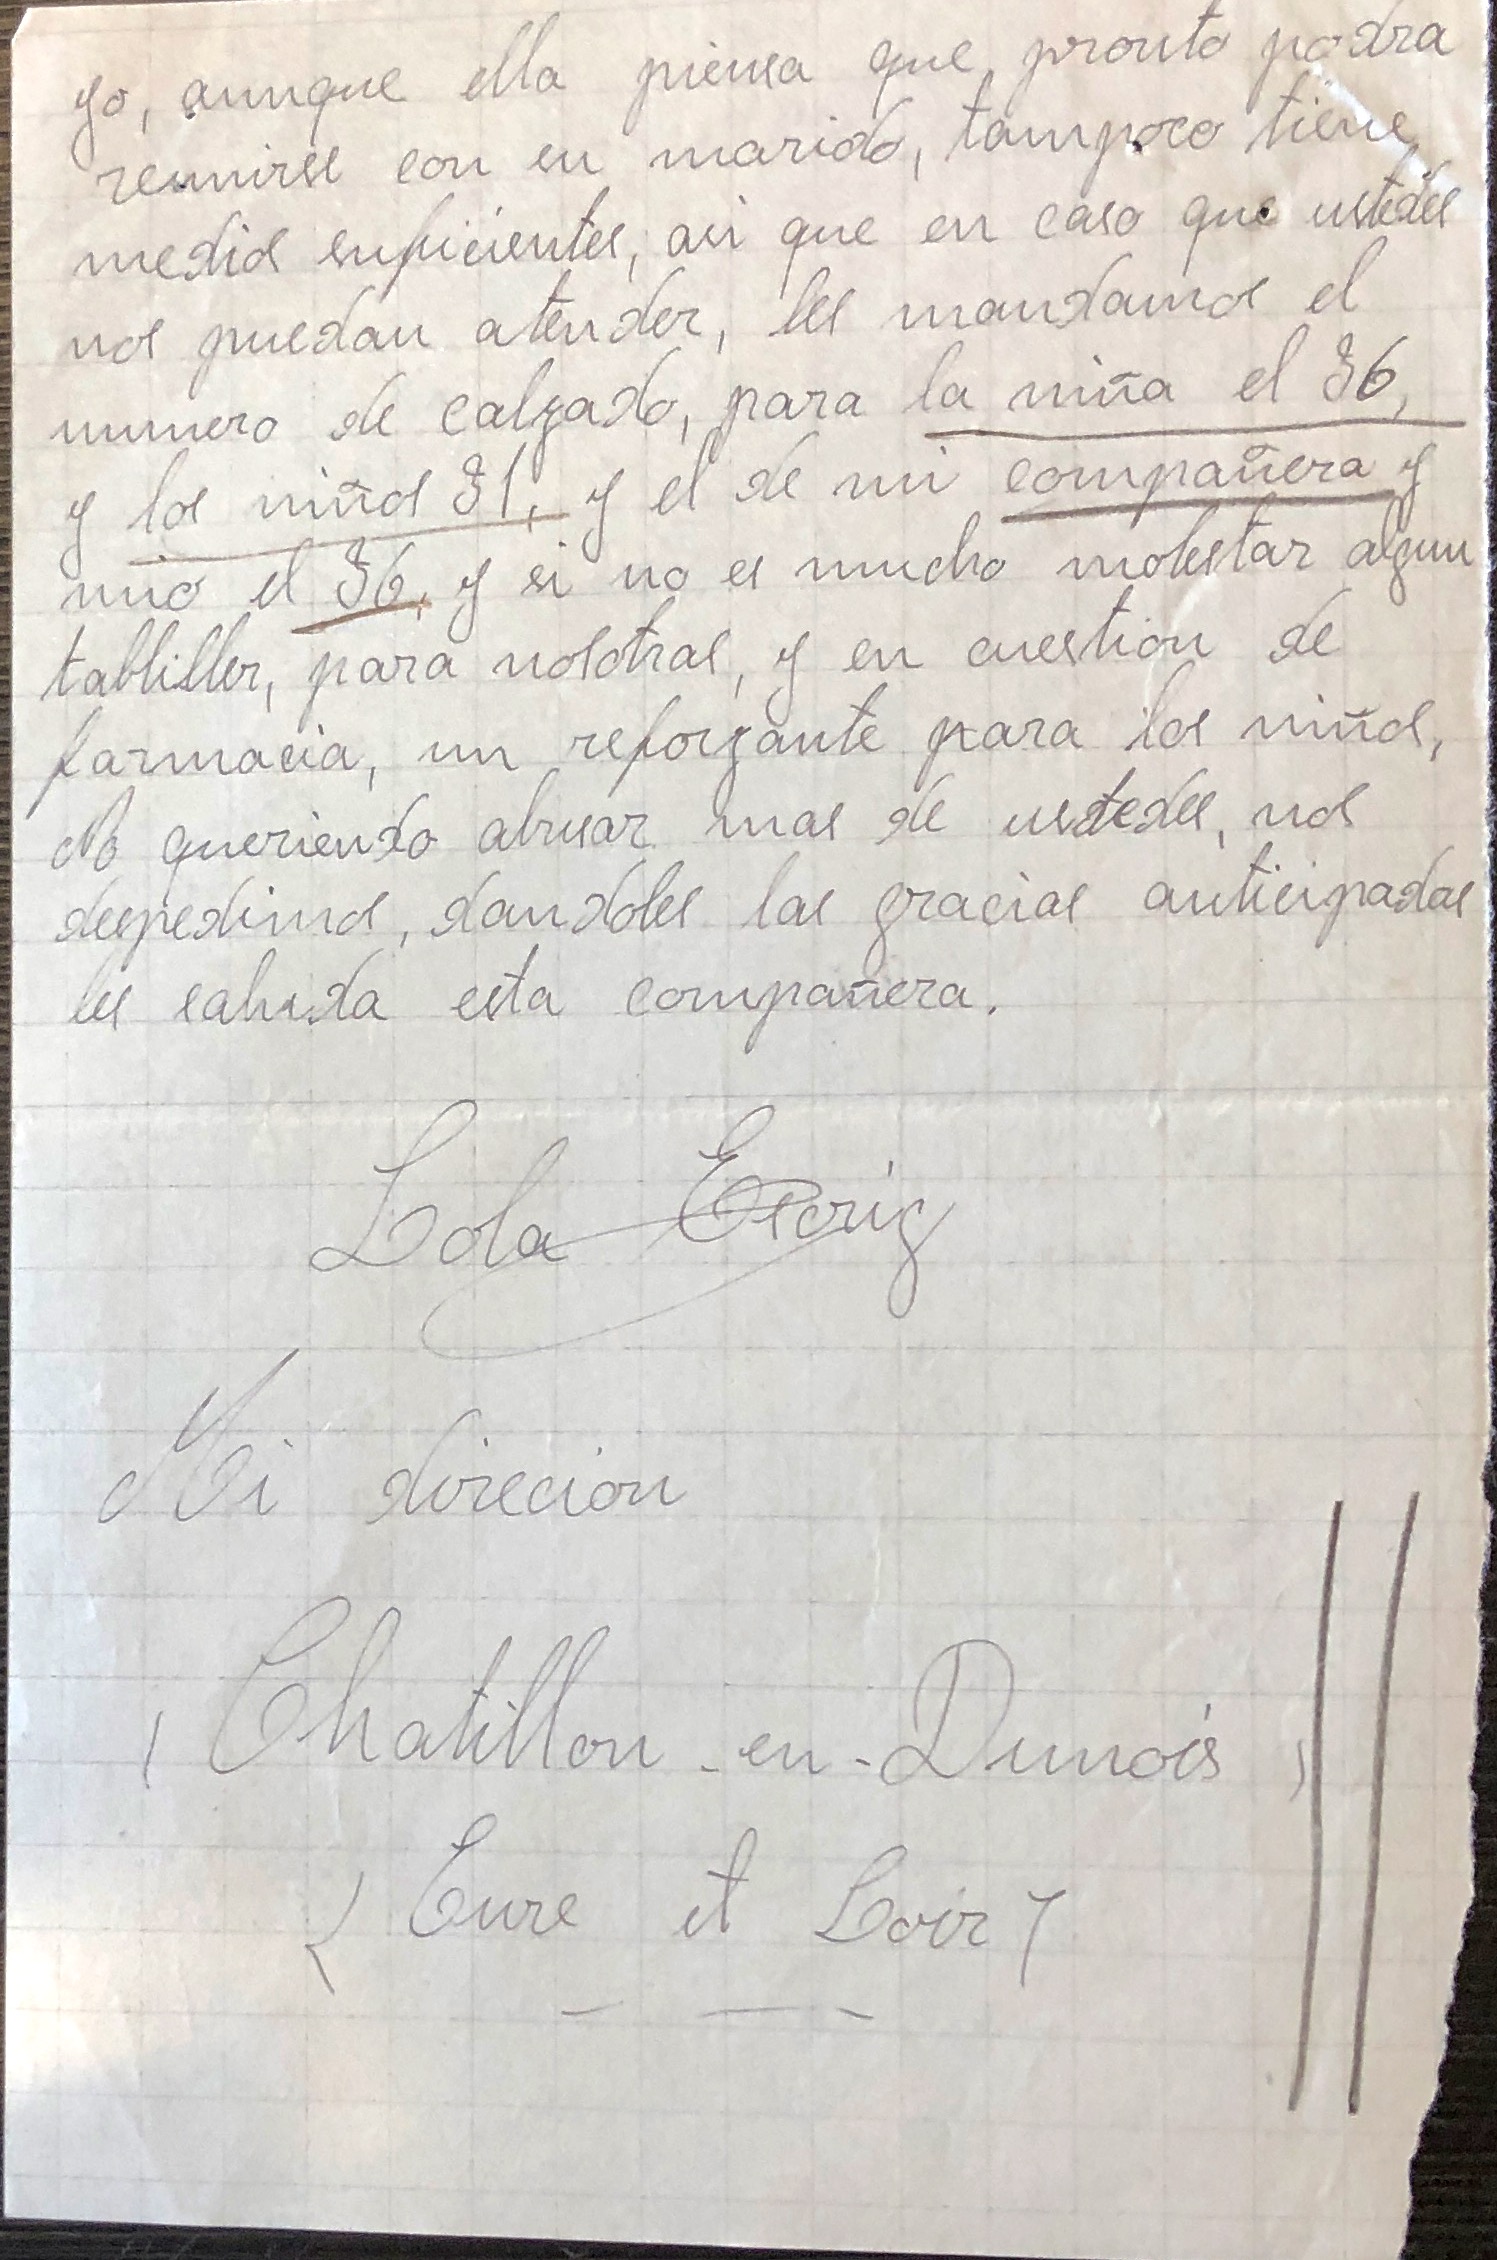 yo, aunque ella piensa que pronto podra
reunirse con su marido, tampoco tiene
medios suficientes, asi que en caso que ustedes
nos puedan atender, les mandamos el
numero de calzado, para la niña el 36,
y los niños 31, y el de mi compañera y
mio el 36, y si no es mucho molestar algun
tablller, para nosotras, y en cuestion de
farmacia, un reforzante para los niños,
No queriendo abusar mas de ustedes, nos
despedimos, dandoles las gracias anticipadas
les saluda esta compañera.
Lola Escrig
Mi direcion
(Chatillon-en-Dunois)
(Eure et Loir)